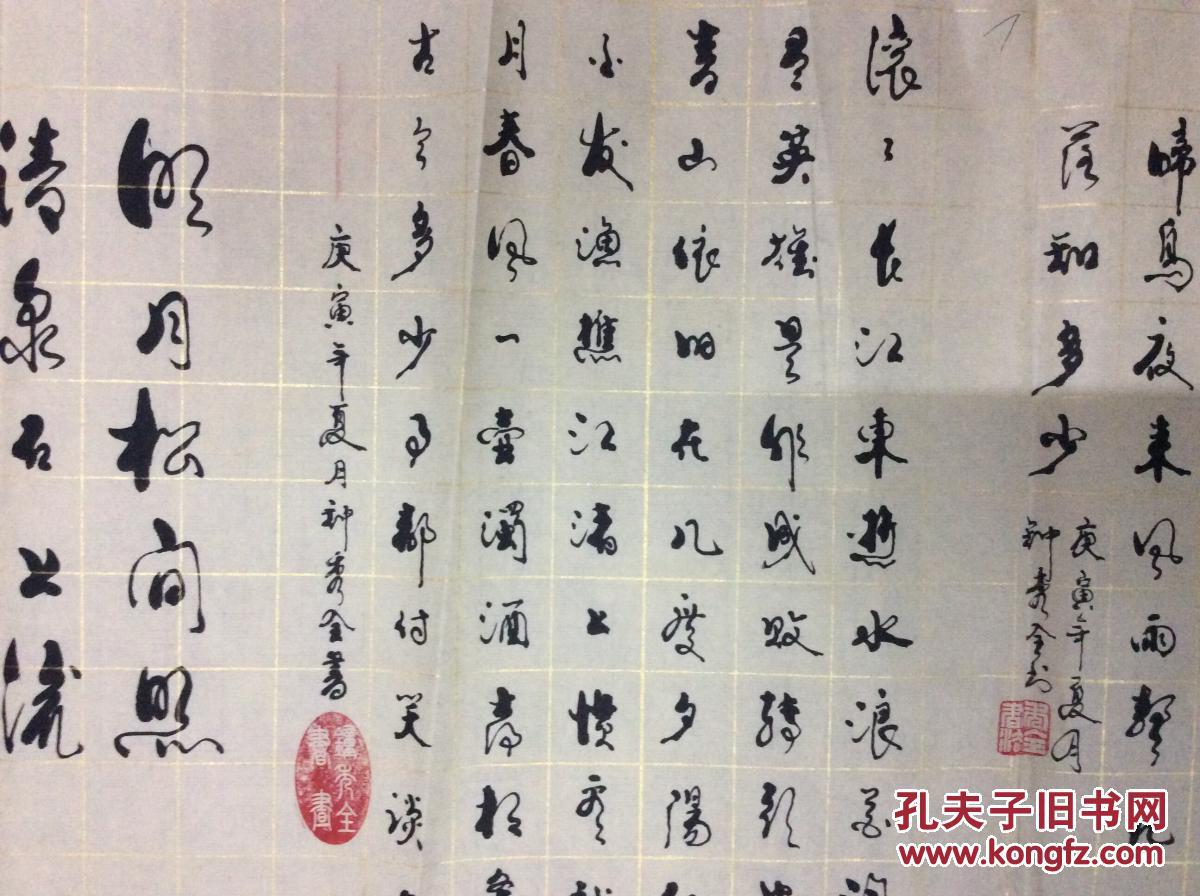 啼鳥夜来风雨聲
落知多少
庚寅年夏月
钟秀全书
滚々长江東逝水浪花淘
尽英雄是非成败转头
青山依旧在几度夕陽
白发漁樵江渚上惯看
月春风一壶濁酒喜相逢
古今多少事都付笑谈
庚寅年夏月钟秀全書
鍾秀全書畫
明月松间照
清泉石上流
孔夫子旧书网
www.kongfz.com